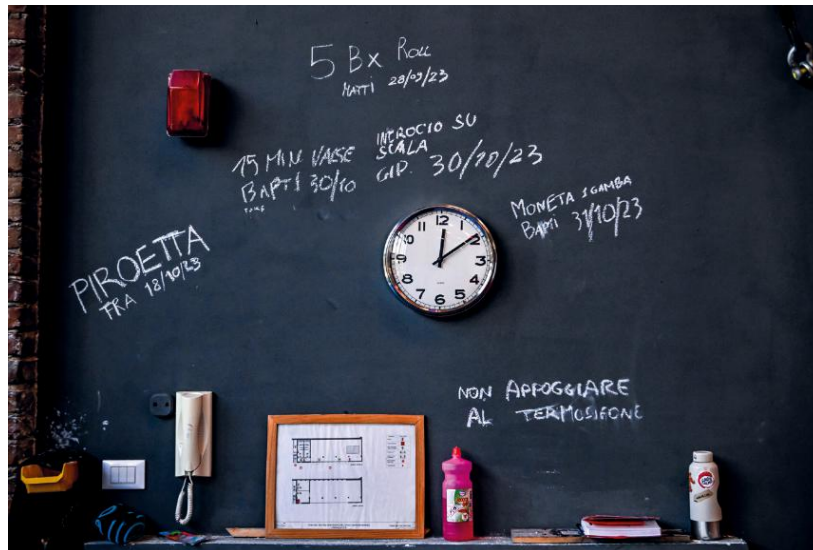 5 Bx Roll
MATTI 28/09/23
15 MIN. VALSE
BAPTI 30/10
INCROCIO SU
SCALA
GIP. 30/10/23
MONETA SGAMBA
BAPTI 31/10/23
PIROETTA
FRA 18/10/23
12
1
2
3
4
5
6
7
8
9
10
11
NON APPOGGIARE
AL TERMOSIFONE